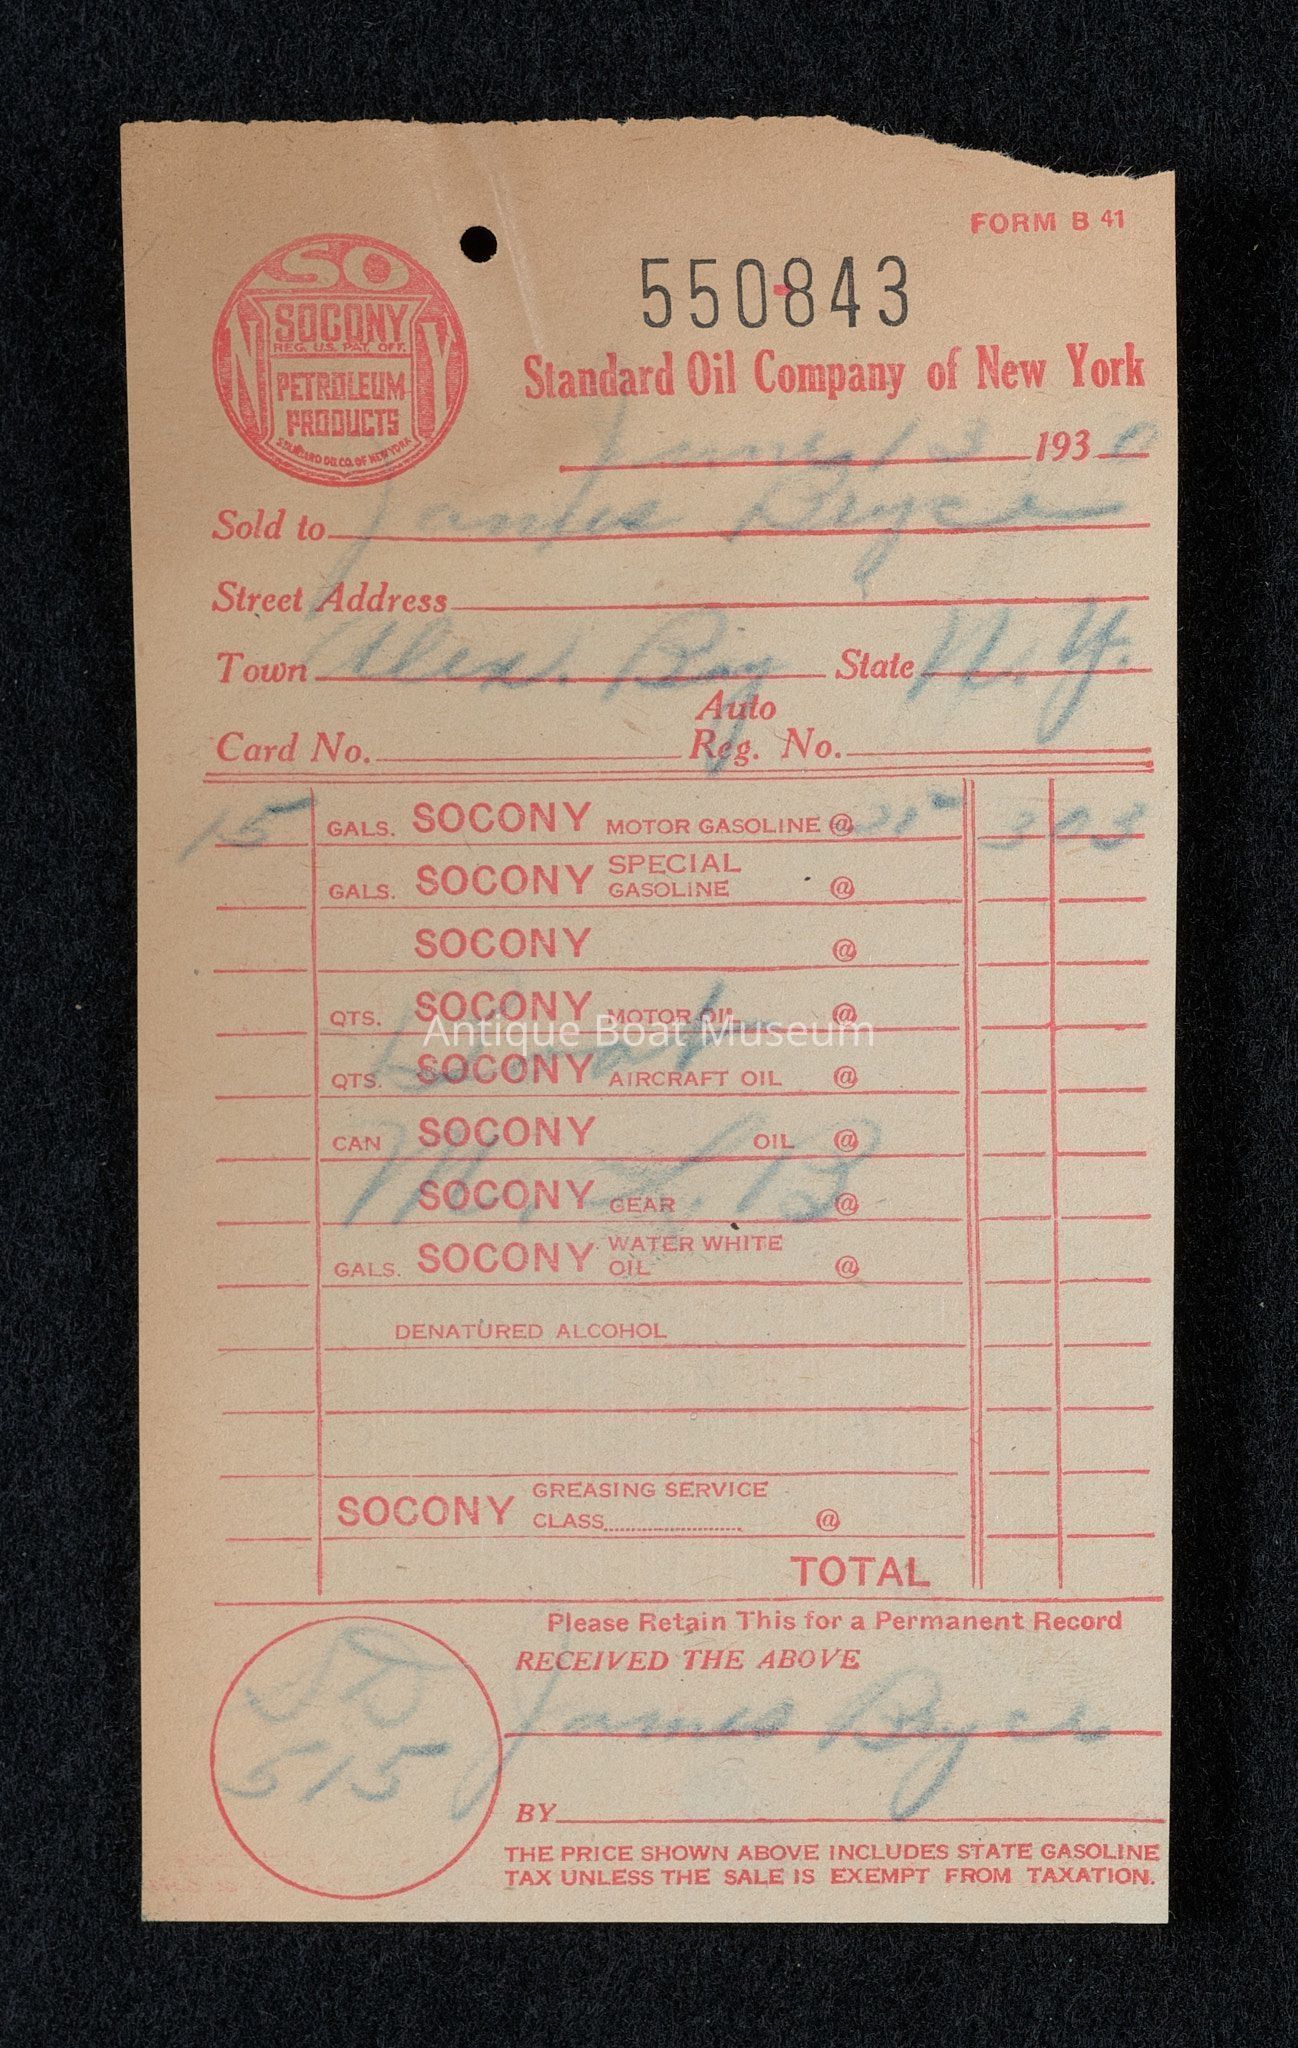 FORM B 41
550843
SO
N Y
SOCONY
REG. U.S. PAT. OFF.
PETROLEUM
PRODUCTS
STANDARD OIL CO. OF NEW YORK
Standard Oil Company of New York
13 1930
Sold to James Bryce
Street Address
Town Alex. Bay State N.Y.
Auto
Card No. Reg. No.
15 GALS. SOCONY MOTOR GASOLINE @ 3 03
GALS. SOCONY SPECIAL GASOLINE @
SOCONY @
QTS. SOCONY MOTOR OIL @
Antique Boat Museum
Boat
QTS. SOCONY AIRCRAFT OIL @
CAN SOCONY OIL @
SOCONY GEAR @
GALS. SOCONY WATER WHITE OIL @
DENATURED ALCOHOL
SOCONY GREASING SERVICE
CLASS @
TOTAL
Please Retain This for a Permanent Record
RECEIVED THE ABOVE
James Bryce
515
BY
THE PRICE SHOWN ABOVE INCLUDES STATE GASOLINE
TAX UNLESS THE SALE IS EXEMPT FROM TAXATION.